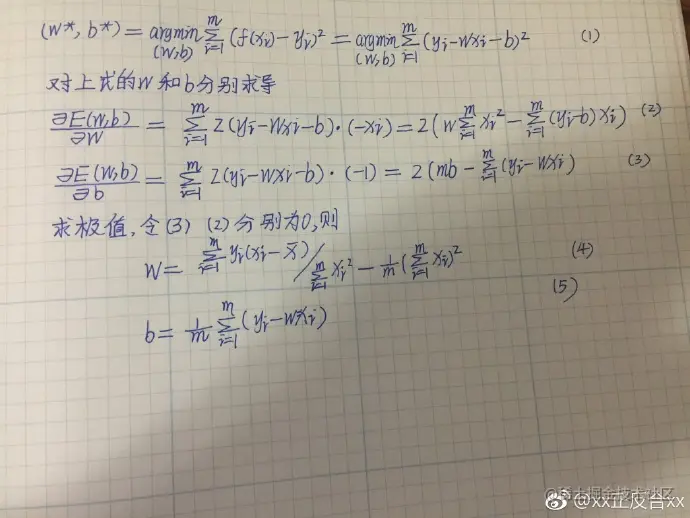 (w*, b*) = argmin (w,b) ∑_{i=1}^{m} (f(xi) − yi)² = argmin (w,b) ∑_{i=1}^{m} (yi − wxi − b)² (1)
对上式的w和b分别求导
∂E(w,b)/∂w = ∑_{i=1}^{m} 2(yi − wxi − b)·(−xi) = 2(w∑_{i=1}^{m} xi² − ∑_{i=1}^{m} (yi−b)xi) (2)
∂E(w,b)/∂b = ∑_{i=1}^{m} 2(yi − wxi − b)·(−1) = 2(mb − ∑_{i=1}^{m} (yi − wxi) (3)
求极值,令(3) (2)分别为0,则
w = ∑_{i=1}^{m} yi(xi − x̄) / ∑_{i=1}^{m} xi² − 1/m (∑_{i=1}^{m} xi)² (4)
(5)
b = 1/m ∑_{i=1}^{m} (yi − wxi)
@稀土掘金技术社区
@xx正反合xx